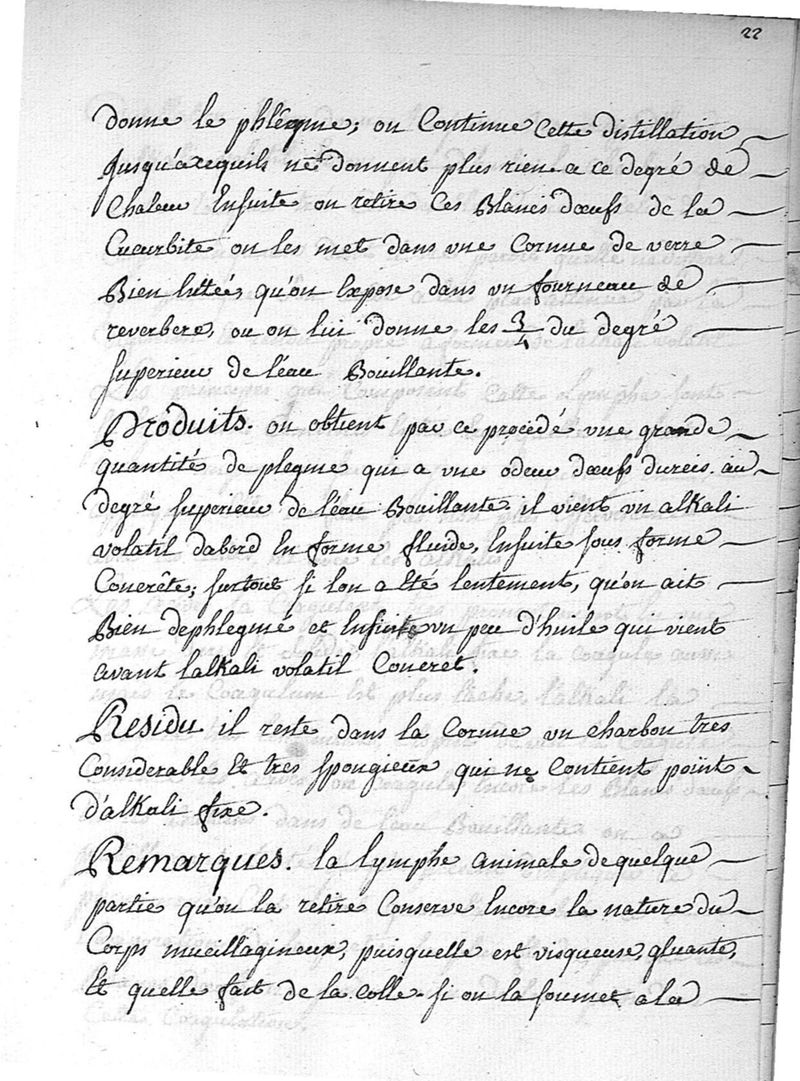 22
donne le phlégme; on Continue Cette distillation
Jusqu'aceequils ne donnent plus rien a ce degré de
Chaleur Ensuite on retire Ces Blancs dœufs de la
Cucurbite on les met dans une Cornue de verre
Bien luttée, qu'on Expose dans un fourneau de
reverbere, ou on lui donne les 3/4 du degré
superieur de l'éau Bouillante.
Produits. on obtient par ce procédé une grande
quantité de plegme qui a une odeur dœufs durcis. au
degré superieur de l'éau Bouillante il vient un alkali
volatil dabord En forme fluide, Ensuite sous forme
Concrête; surtout si lon a Eté lentement, qu'on ait
Bien dephlegmé et Ensuite un peu d'huile qui vient
avant lalkali volatil Concret.
Residu il reste dans la Cornue un charbon tres
Considerable Et tres spongieux qui ne Contient point
d'alkali fixe.
Remarques. la lymphe animale de quelque
partie qu'on la retire Conserve Encore la nature du
Corps mucillagineux, puisquelle est visqueuse, gluante,
Et quelle fait de la colle. si on la soumet a la